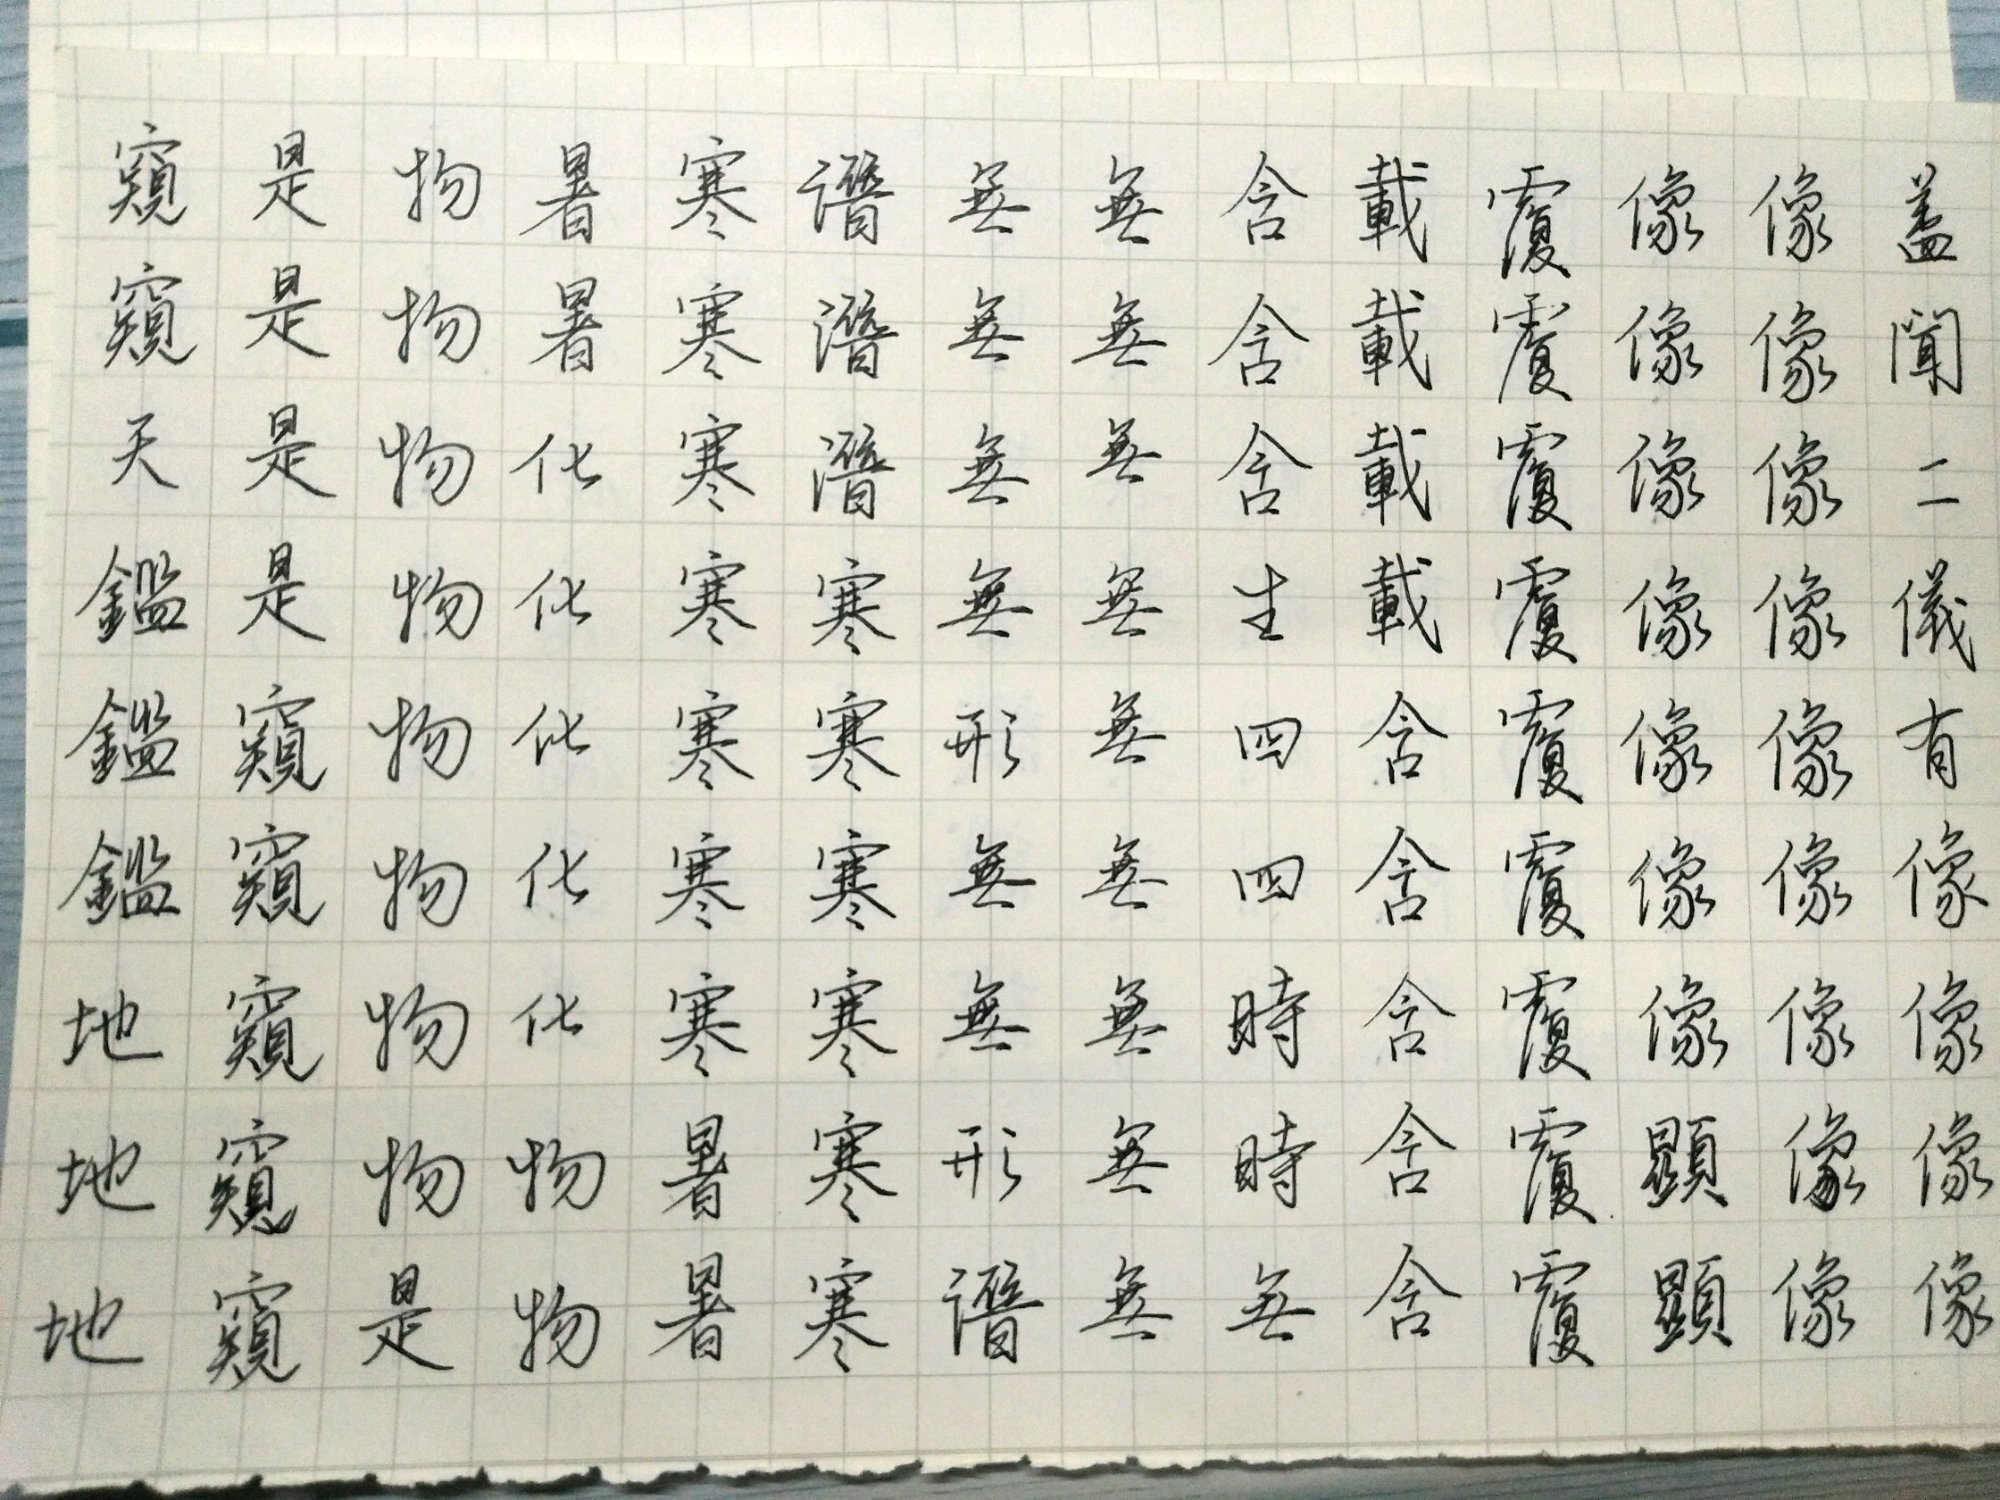 盖聞二儀有像像像像
像像像像像像像像像
像像像像像像像顯顯
覆覆覆覆覆覆覆覆覆
載載載載含含含含含
含含含生四四時時無
無無無無無無無無無
無無無無形無無形潛
潛潛潛寒寒寒寒寒寒
寒寒寒寒寒寒寒暑暑
暑暑化化化化化物物
物物物物物物物物是
是是是是窺窺窺窺窺
窺窺天鑑鑑鑑地地地